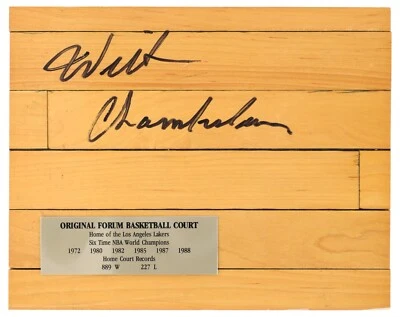 Wilt
Chamberlain
ORIGINAL FORUM BASKETBALL COURT
Home of the Los Angeles Lakers
Six Time NBA World Champions
1972 1980 1982 1985 1987 1988
Home Court Records
889 W 227 L